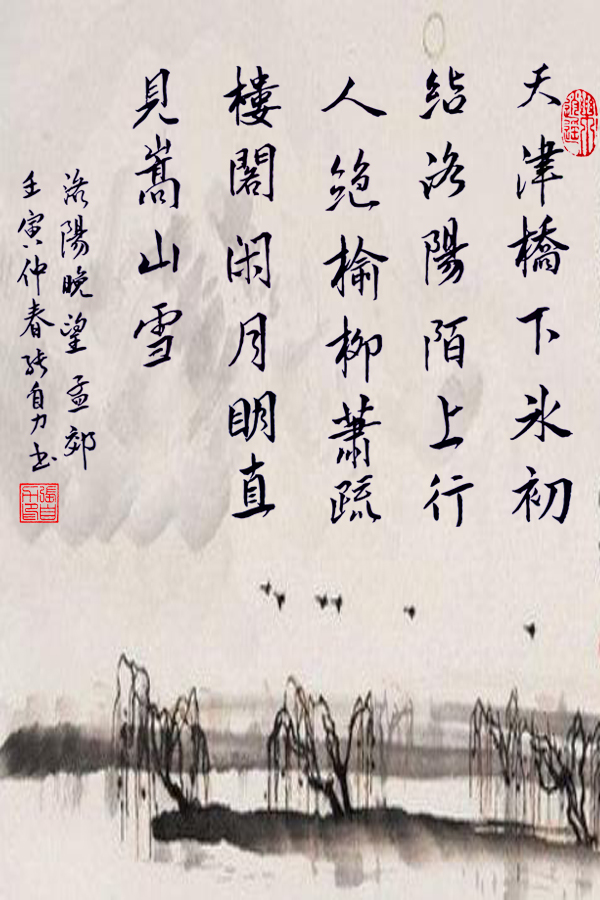 天津橋下氷初
結洛陽陌上行
人絶榆柳蕭疏
樓閣闲月明直
見嵩山雪
洛陽晚望孟郊
壬寅仲春張自力书
張自力印